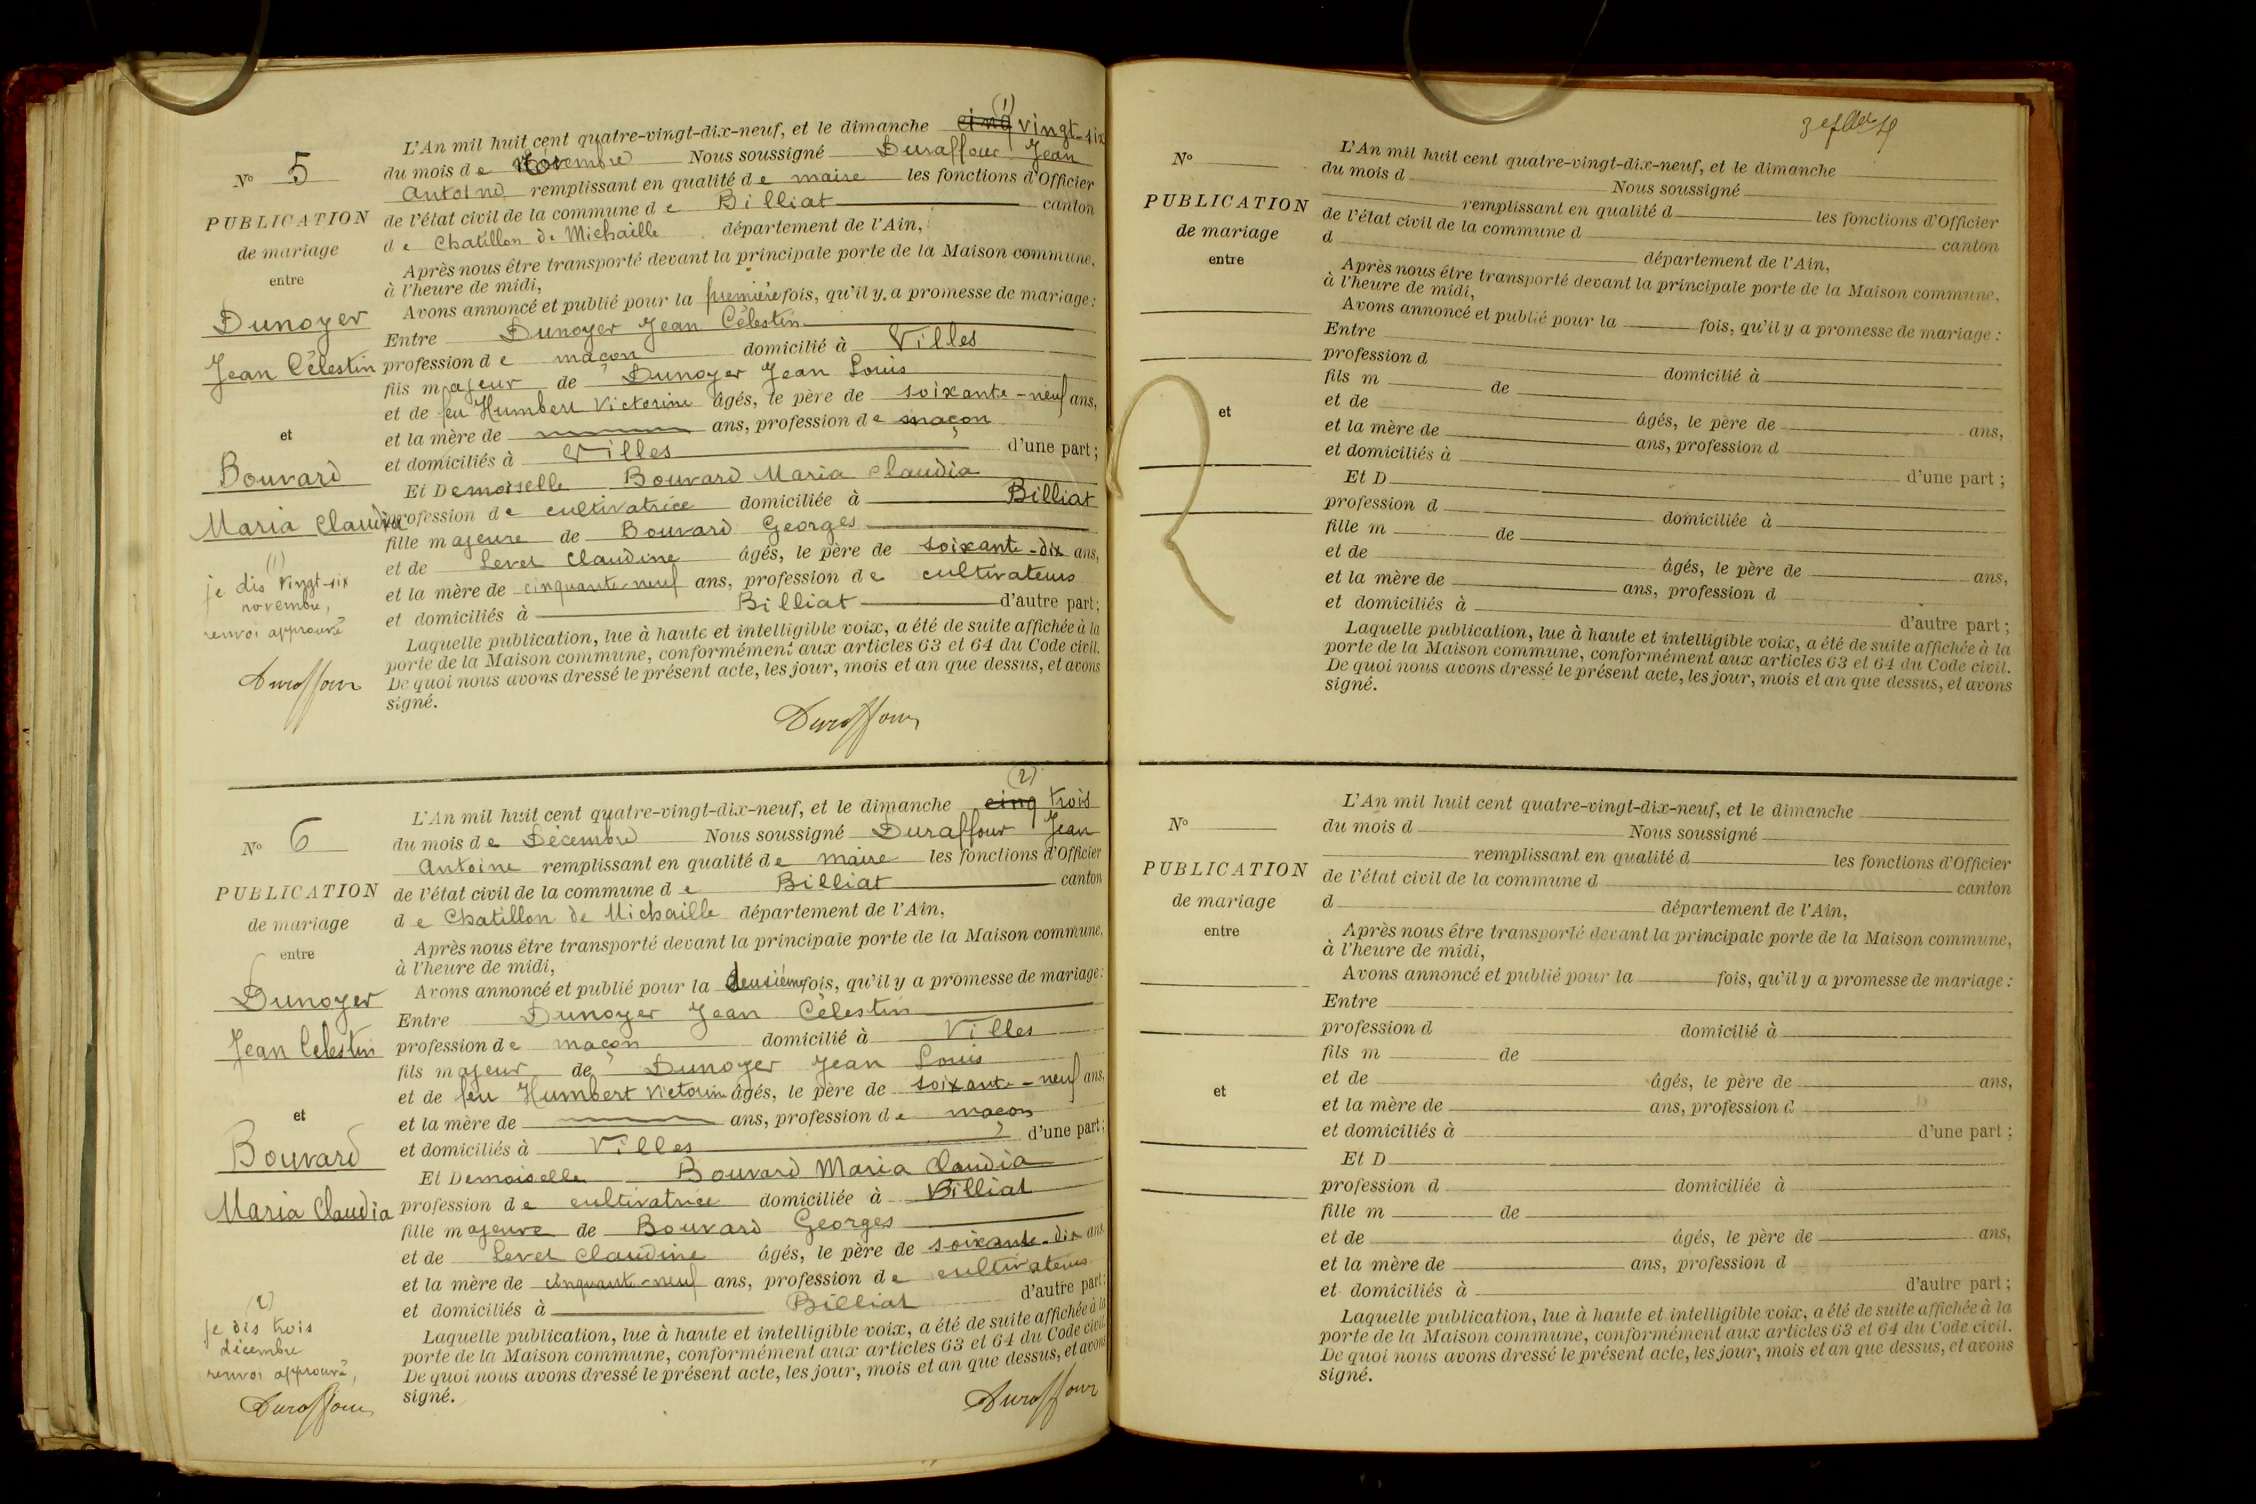 (1)
L'An mil huit cent quatre-vingt-dix-neuf, et le dimanche cinq vingt-six
du mois de Novembre Nous soussigné Duraffour Jean
Antoine remplissant en qualité de maire les fonctions d'Officier
de l'état civil de la commune de Billiat canton
de Chatillon de Michaille département de l'Ain,
Après nous être transporté devant la principale porte de la Maison commune,
à l'heure de midi,
Avons annoncé et publié pour la première fois, qu'il y a promesse de mariage :
Entre Dunoyer Jean Célestin
profession de maçon domicilié à Villes
fils majeur de Dunoyer Jean Louis
et de feu Humbert Victorine âgés, le père de soixante-neuf ans,
et la mère de ans, profession de maçon
et domiciliés à Villes d'une part ;
Et Demoiselle Bouvard Maria Claudia
profession de cultivatrice domiciliée à Billiat
fille majeure de Bouvard Georges
et de Levet Claudine âgés, le père de soixante-dix ans,
et la mère de cinquante-neuf ans, profession de cultivateurs
et domiciliés à Billiat d'autre part ;
Laquelle publication, lue à haute et intelligible voix, a été de suite affichée à la
porte de la Maison commune, conformément aux articles 63 et 64 du Code civil.
De quoi nous avons dressé le présent acte, les jour, mois et an que dessus, et avons
signé.
Duraffour
N° 5
PUBLICATION
de mariage
entre
Dunoyer
Jean Célestin
et
Bouvard
Maria Claudia
(1)
je dis vingt-six
novembre,
renvoi approuvé
Duraffour
(2)
L'An mil huit cent quatre-vingt-dix-neuf, et le dimanche cinq trois
du mois de Décembre Nous soussigné Duraffour Jean
Antoine remplissant en qualité de maire les fonctions d'Officier
de l'état civil de la commune de Billiat canton
de Chatillon de Michaille département de l'Ain,
Après nous être transporté devant la principale porte de la Maison commune,
à l'heure de midi,
Avons annoncé et publié pour la deusième fois, qu'il y a promesse de mariage :
Entre Dunoyer Jean Célestin
profession de maçon domicilié à Villes
fils majeur de Dunoyer Jean Louis
et de feu Humbert Victorine âgés, le père de soixante-neuf ans,
et la mère de ans, profession de maçon
et domiciliés à Villes d'une part ;
Et Demoiselle Bouvard Maria Claudia
profession de cultivatrice domiciliée à Billiat
fille majeure de Bouvard Georges
et de Levet Claudine âgés, le père de soixante-dix ans,
et la mère de cinquante-neuf ans, profession de cultivateurs
et domiciliés à Billiat d'autre part ;
Laquelle publication, lue à haute et intelligible voix, a été de suite affichée à la
porte de la Maison commune, conformément aux articles 63 et 64 du Code civil.
De quoi nous avons dressé le présent acte, les jour, mois et an que dessus, et avons
signé.
Duraffour
N° 6
PUBLICATION
de mariage
entre
Dunoyer
Jean Célestin
et
Bouvard
Maria Claudia
(2)
je dis trois
décembre
renvoi approuvé,
Duraffour
N°
PUBLICATION
de mariage
entre
et
L'An mil huit cent quatre-vingt-dix-neuf, et le dimanche
du mois d Nous soussigné
remplissant en qualité d les fonctions d'Officier
de l'état civil de la commune d canton
d département de l'Ain,
Après nous être transporté devant la principale porte de la Maison commune,
à l'heure de midi,
Avons annoncé et publié pour la fois, qu'il y a promesse de mariage :
Entre
profession d domicilié à
fils m de
et de âgés, le père de ans,
et la mère de ans, profession d
et domiciliés à d'une part ;
Et D
profession d domiciliée à
fille m de
et de âgés, le père de ans,
et la mère de ans, profession d
et domiciliés à d'autre part ;
Laquelle publication, lue à haute et intelligible voix, a été de suite affichée à la
porte de la Maison commune, conformément aux articles 63 et 64 du Code civil.
De quoi nous avons dressé le présent acte, les jour, mois et an que dessus, et avons
signé.
N°
PUBLICATION
de mariage
entre
et
L'An mil huit cent quatre-vingt-dix-neuf, et le dimanche
du mois d Nous soussigné
remplissant en qualité d les fonctions d'Officier
de l'état civil de la commune d canton
d département de l'Ain,
Après nous être transporté devant la principale porte de la Maison commune,
à l'heure de midi,
Avons annoncé et publié pour la fois, qu'il y a promesse de mariage :
Entre
profession d domicilié à
fils m de
et de âgés, le père de ans,
et la mère de ans, profession d
et domiciliés à d'une part ;
Et D
profession d domiciliée à
fille m de
et de âgés, le père de ans,
et la mère de ans, profession d
et domiciliés à d'autre part ;
Laquelle publication, lue à haute et intelligible voix, a été de suite affichée à la
porte de la Maison commune, conformément aux articles 63 et 64 du Code civil.
De quoi nous avons dressé le présent acte, les jour, mois et an que dessus, et avons
signé.